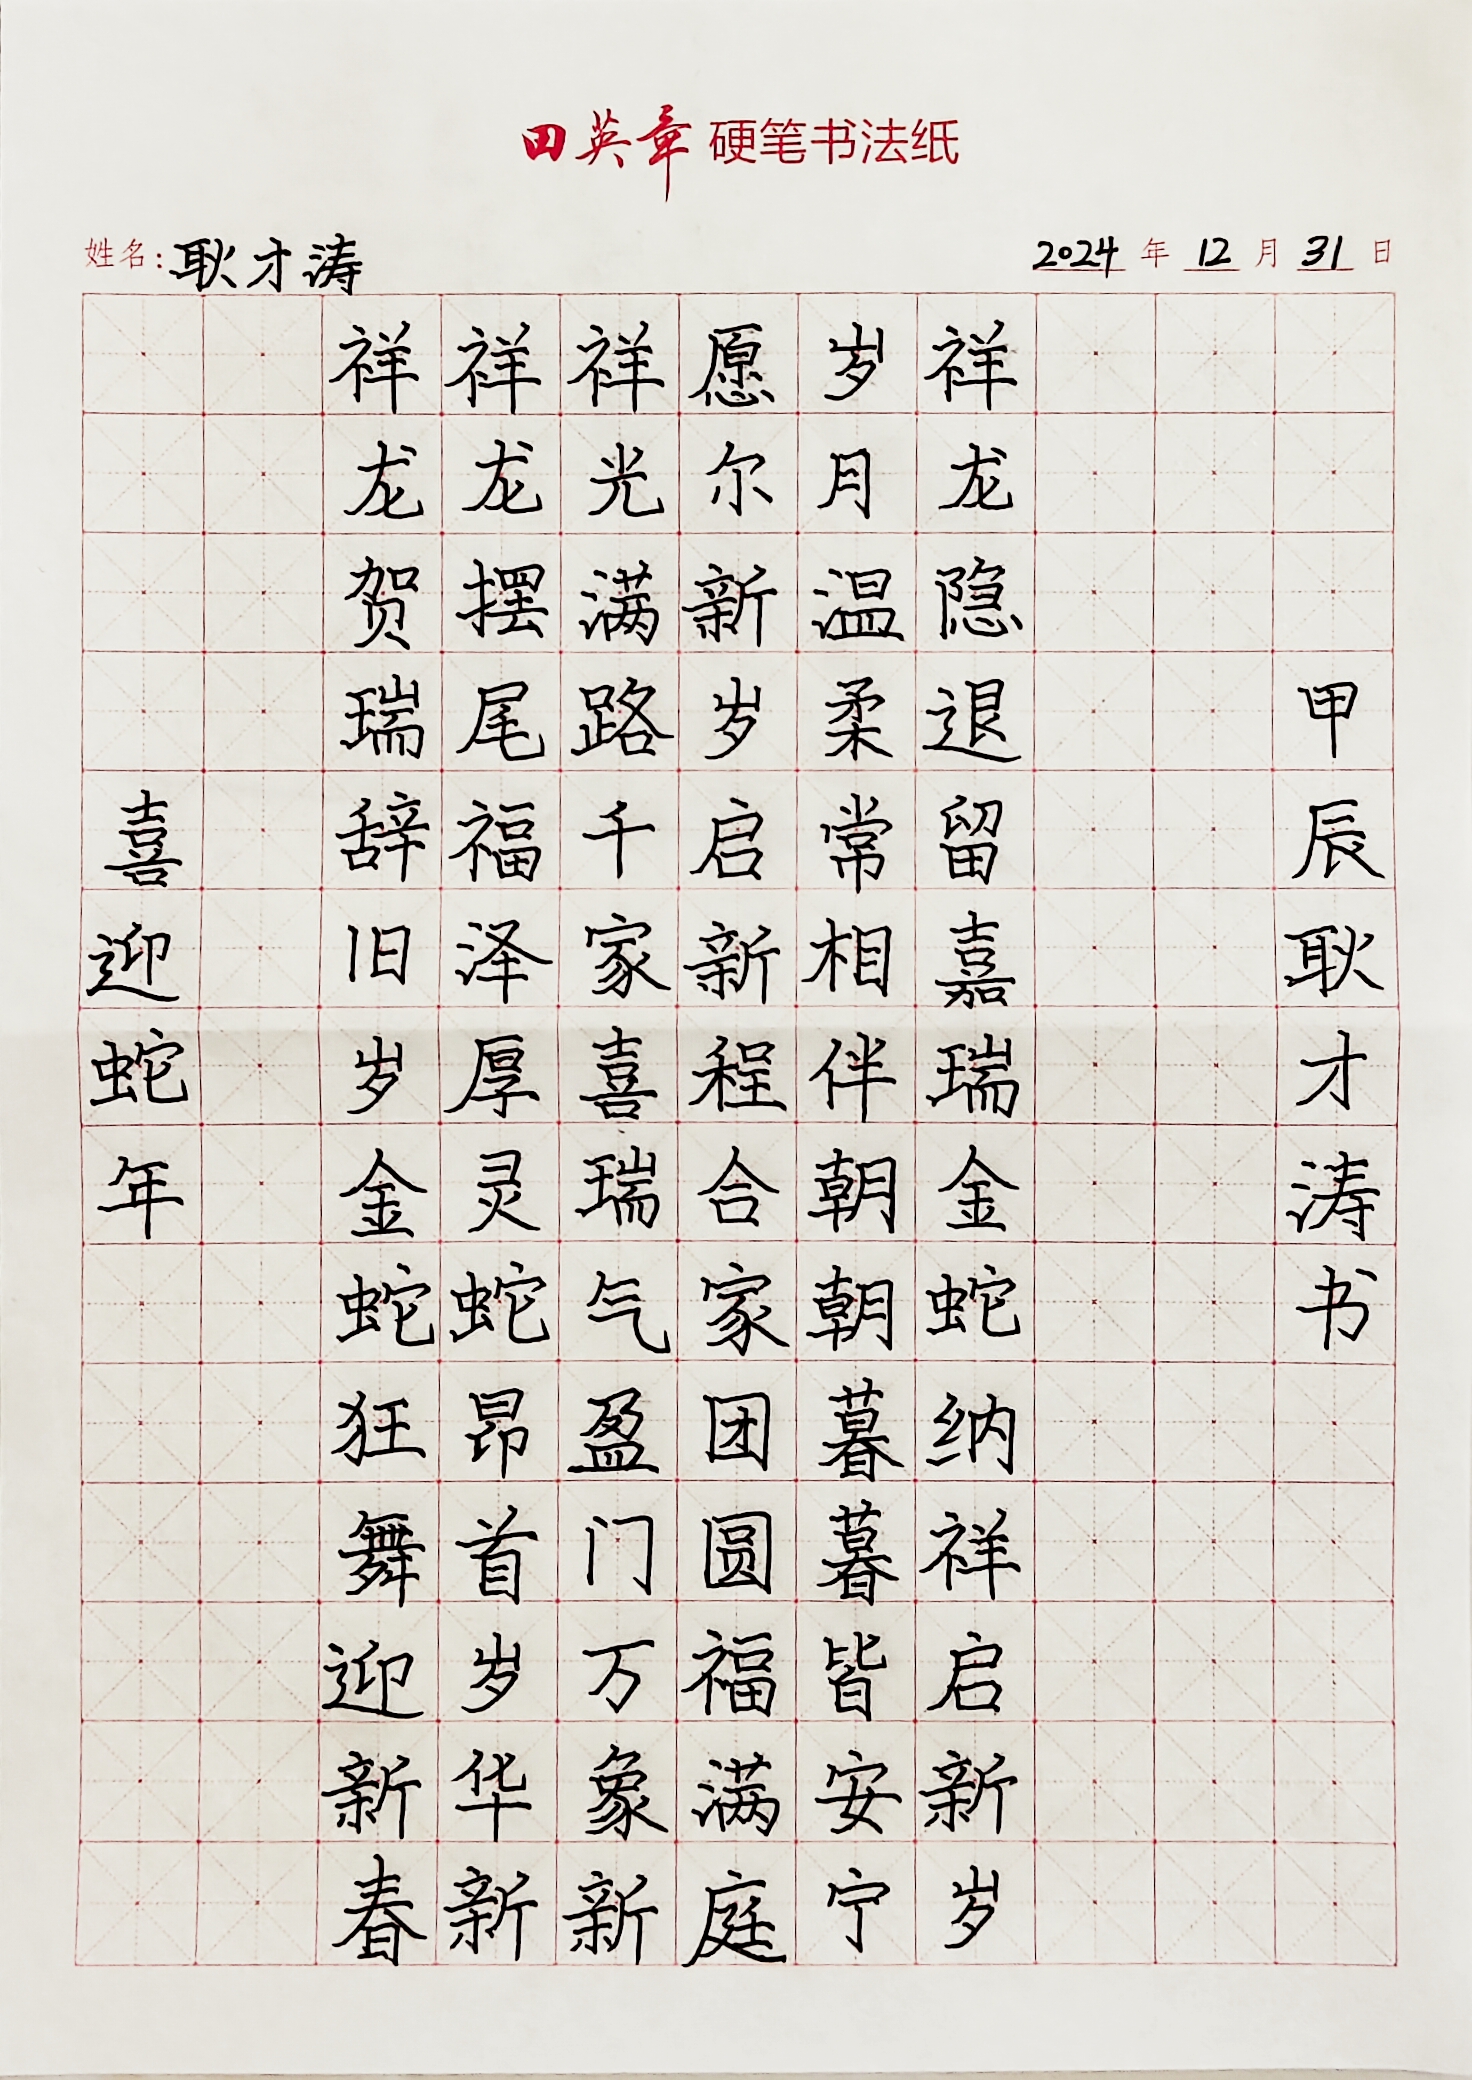 田英章硬笔书法纸
姓名:耿才涛
2024年12月31日
喜迎蛇年
祥龙贺瑞辞旧岁金蛇狂舞迎新春
祥龙摆尾福泽厚灵蛇昂首岁华新
祥光满路千家喜瑞气盈门万象新
愿尔新岁启新程合家团圆福满庭
岁月温柔常相伴朝朝暮暮皆安宁
祥龙隐退留嘉瑞金蛇纳祥启新岁
甲辰耿才涛书